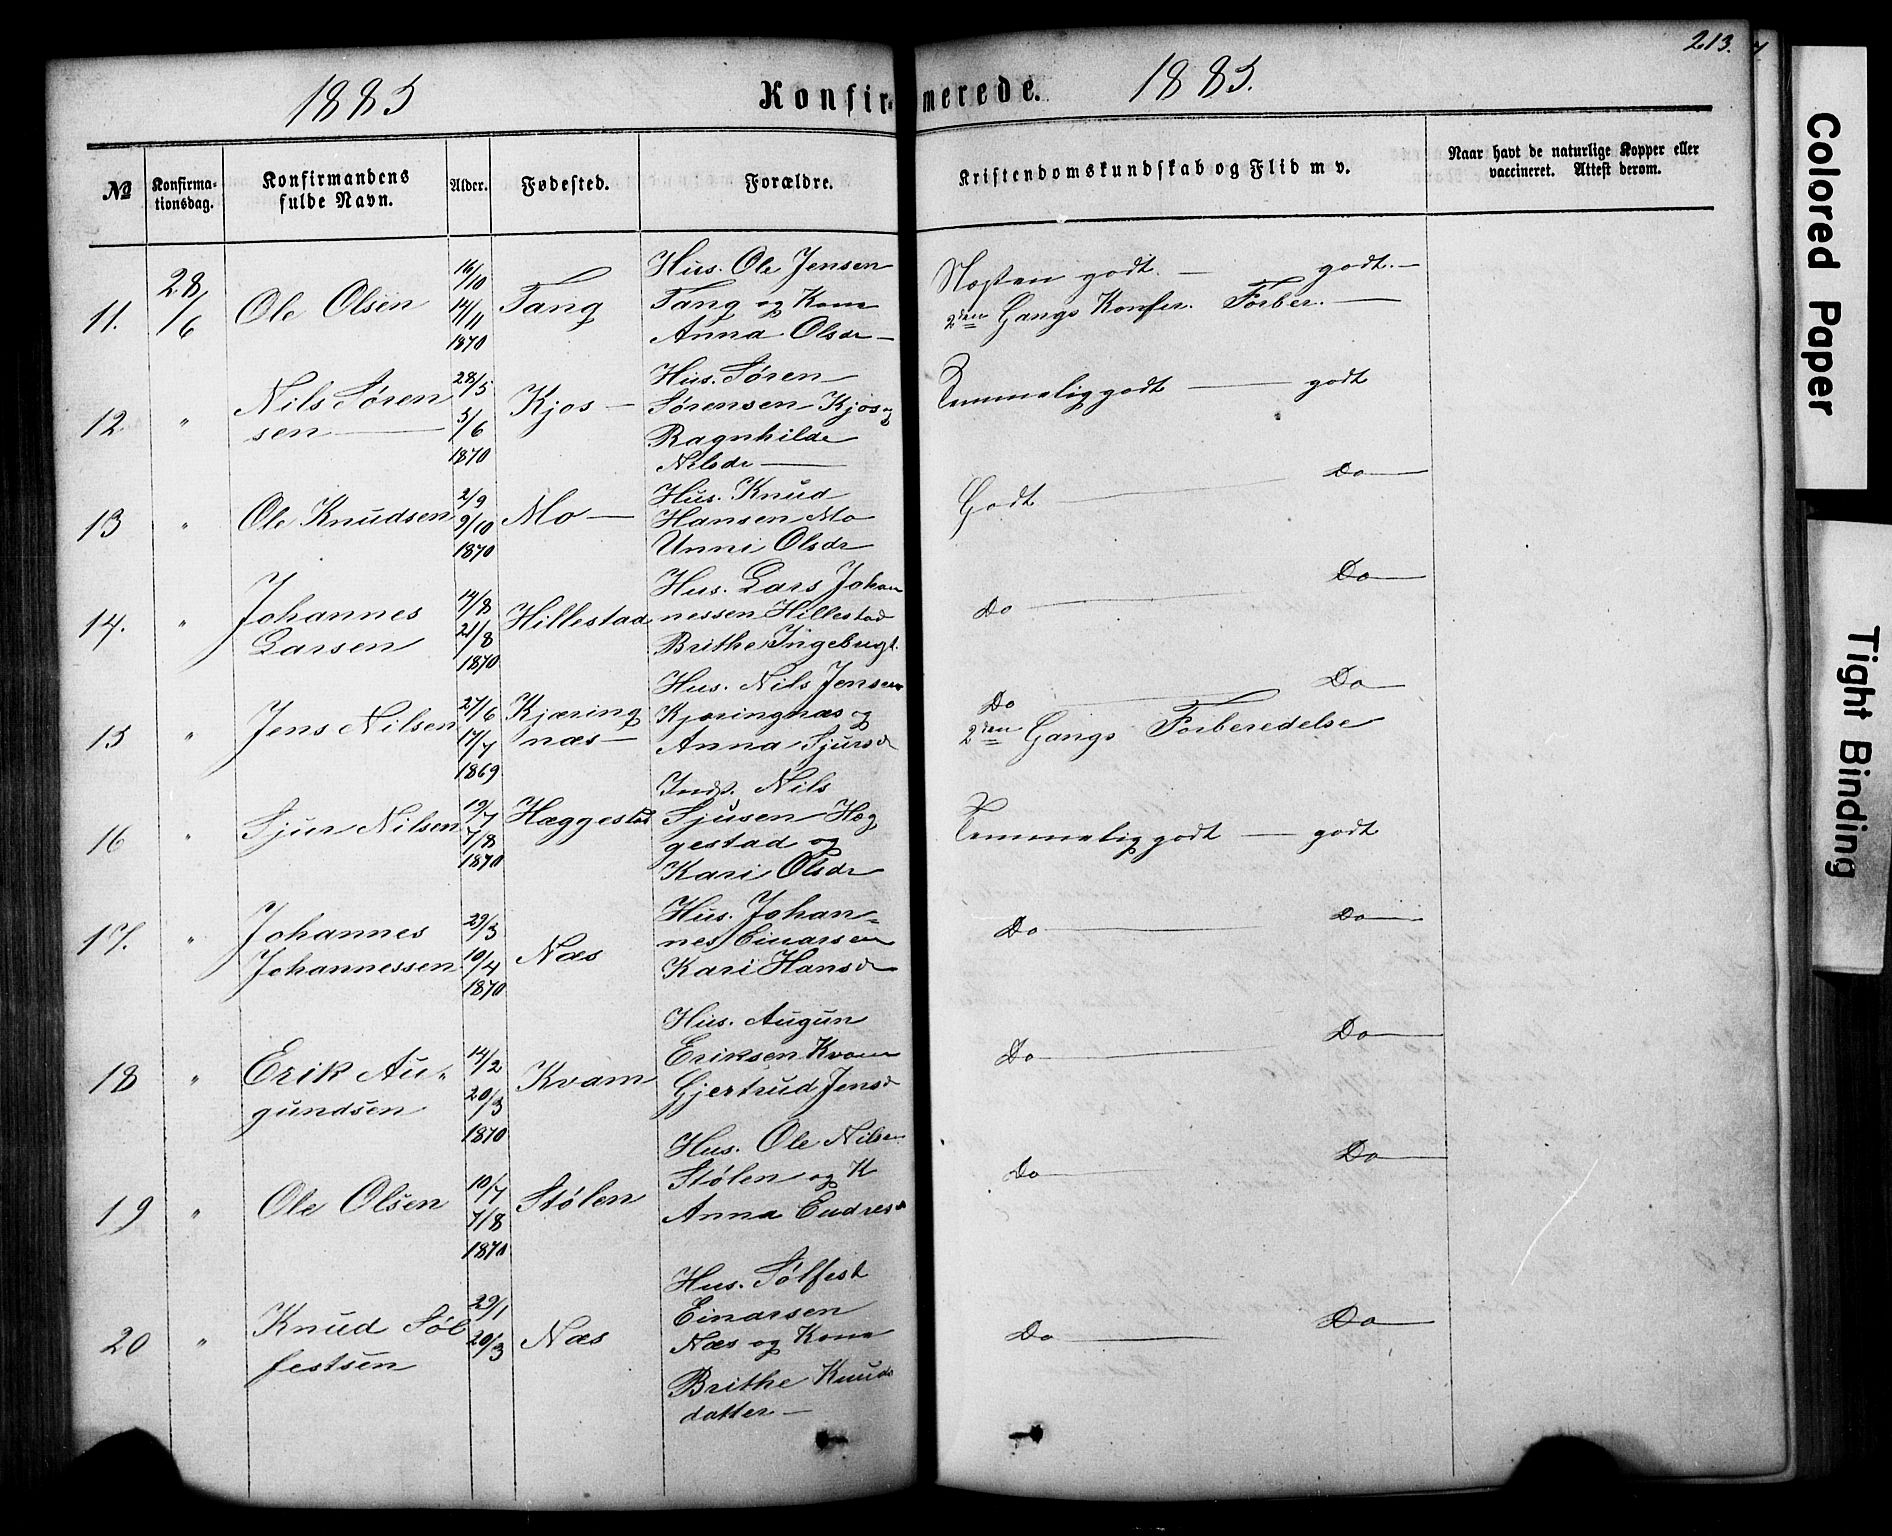 213.
1885 Konfirmerede. 1885.
No
Konfirmationsdag.
Konfirmandens fulde Navn.
Alder.
Fødested.
Forældre.
Kristendomskundskab og Flid m v.
Naar havt de naturlige Kopper eller vaccineret. Attest derom.
11. 28/6 Ole Olsen 16/10 14/11 1870 Tang
Hus. Ole Jensen
Tang og Kone
Anna Olsdr
Næsten godt. — godt. —
2den Gangs Konfer. Forber. —
12. " Nils Søren
sen — 28/5 5/6 1870 Kjos —
Hus. Søren
Sørensen Kjos og
Ragnhilde
Nilsdr —
Temmelig godt — godt
13 " Ole Knudsen 2/9 9/10 1870 Mo —
Hus. Knud
Hansen Mo
Unni Olsdr
Godt — Do —
14. " Johannes
Larsen 14/8 21/8 1870 Hillestad
Hus. Lars Johan
nessen Hillestad
Brithe Ingebrigt.
Do — Do —
15 " Jens Nilsen 27/6 17/7 1869 Kjæring
næs —
Hus. Nils Jensen
Kjæringnæs og
Anna Sjursd
Do — Do —
2den Gangs Forberedelse
16 " Sjur Nilsen 19/7 7/8 1870 Hæggestad
Inds. Nils
Sjusen Hæg
gestad og
Kari Olsdr
Temmelig godt — godt
17. " Johannes
Johannessen 29/3 10/4 1870 Næs
Hus. Johan=
nes Einarsen
Kari Hansd
Do — Do —
18 " Erik Au-
gundsen 14/2 20/3 1870 Kvam
Hus. Augun
Eriksen Kvam
Gjertrud Jensd
Do — Do —
19 " Ole Olsen 10/7 7/8 1870 Stølen
Hus. Ole Nilsen
Stølen og K
Anna Endresd
Do — Do —
20 " Knud Søl
festsen 29/1 20/3 Næs
Hus. Sølfest
Einarsen
Næs og Kone
Brithe Knuds
datter —
Do — Do —
Colored Paper
Tight Binding